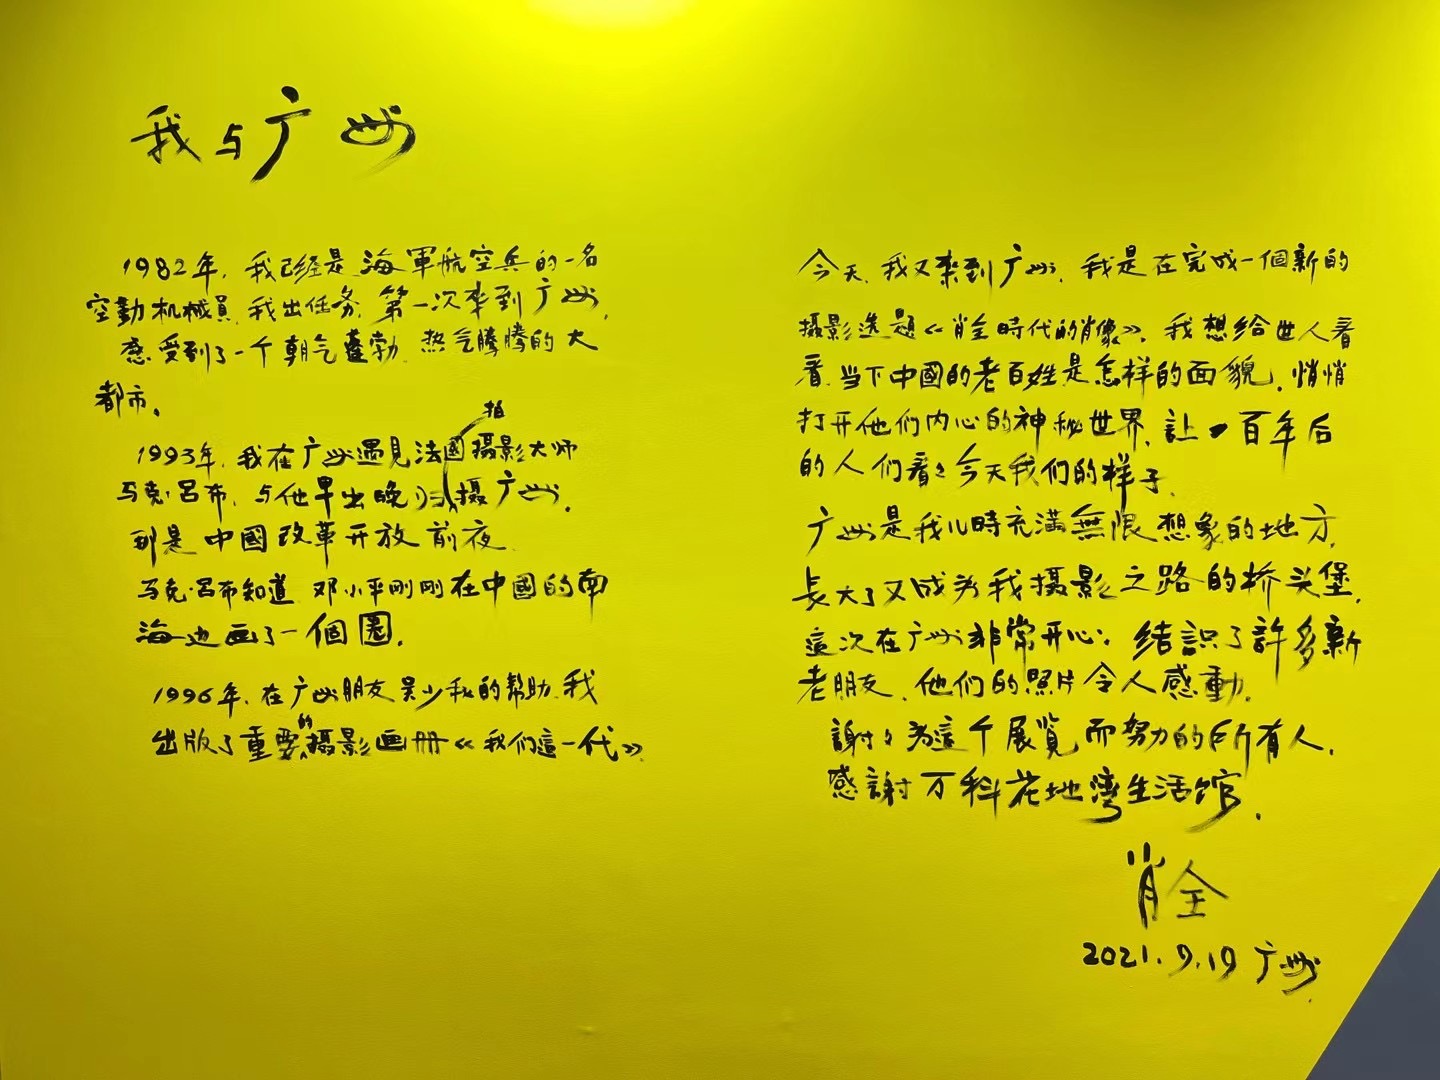 我与广州
1982年,我已经是海軍航空兵的一名
空勤机械員,我出任务,第一次来到广州,
感受到了一个朝气蓬勃,热气腾腾的大
都市。
1993年,我在广州遇見法國攝影大师
马克·吕布,与他早出晚归拍攝广州。
那是中國改革开放前夜
马克·吕布知道,邓小平刚刚在中國的南
海边画了一個圈。
1996年,在广州朋友吴少秋的帮助,我
出版了重要的攝影画册《我们這一代》
今天,我又来到广州,我是在完成一個新的
攝影选题《肖全時代的肖像》,我想给世人看
看,当下中國的老百姓是怎样的面貌,悄悄
打开他们内心的神秘世界,让一百年后
的人们看看今天我们的样子,
广州是我儿時充满無限想象的地方,
長大了又成为我攝影之路的桥头堡,
這次在广州非常开心;结識了許多新
老朋友,他们的照片令人感動,
謝謝為這个展览而努力的所有人,
感謝万科花地湾生活馆.
肖全
2021.9.19 广州